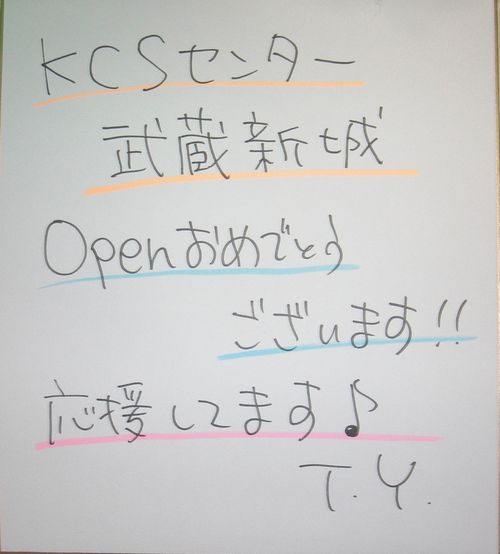 KCSセンター
武蔵新城
Openおめでとう
ございます!!
応援してます♪
T.Y.